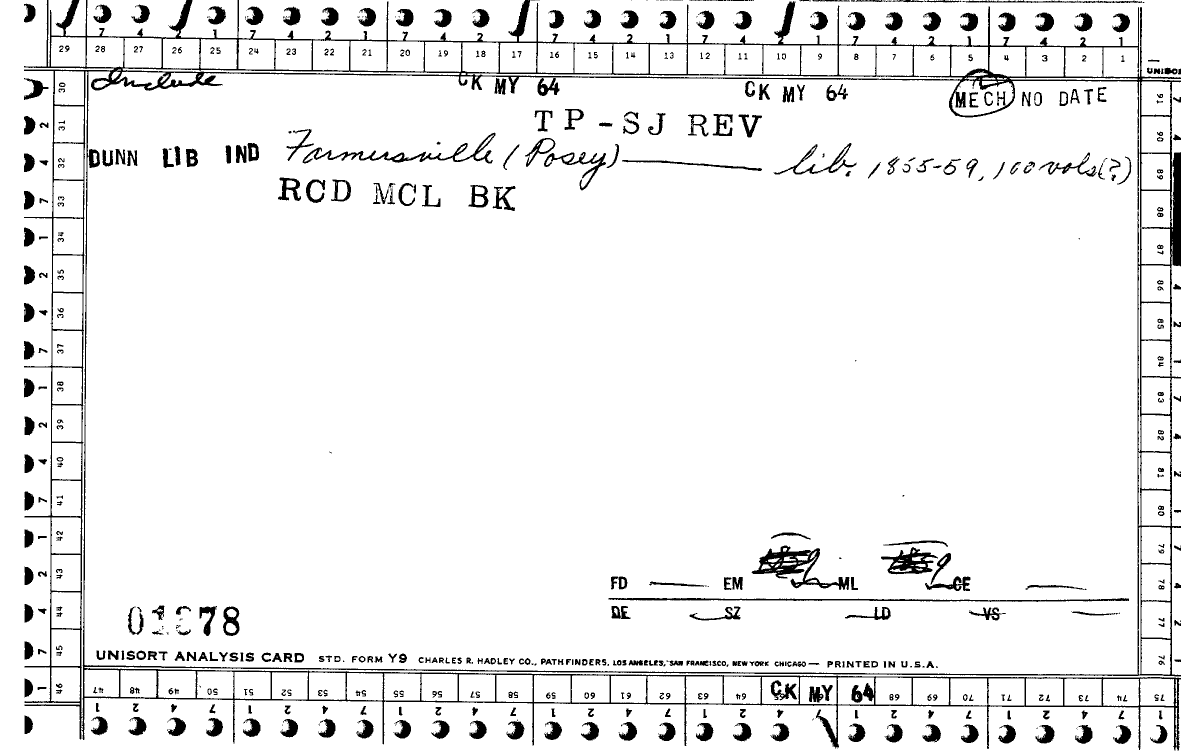 7 4 2 1 7 4 2 1 7 4 2 1 7 4 2 1 7 4 2 1 7 4 2 1 7 4 2 1
29 28 27 26 25 24 23 22 21 20 19 18 17 16 15 14 13 12 11 10 9 8 7 6 5 4 3 2 1
UNISO
Include CK MY 64 CK MY 64 MECH NO DATE
TP-SJ REV
DUNN LIB IND Farmersville (Posey) lib. 1855-59, 100 vols(?)
RCD MCL BK
30 31 32 33 34 35 36 37 38 39 40 41 42 43 44 45 46
91 90 89 88 87 86 85 84 83 82 81 80 79 78 77 76
FD EM ML CE
DE SZ LD VS
UNISORT ANALYSIS CARD STD. FORM Y9 CHARLES R. HADLEY CO., PATHFINDERS, LOS ANGELES, SAN FRANCISCO, NEW YORK CHICAGO — PRINTED IN U.S.A.
47 48 49 50 51 52 53 54 55 56 57 58 59 60 61 62 63 64 CK MY 64 68 69 70 71 72 73 74 75